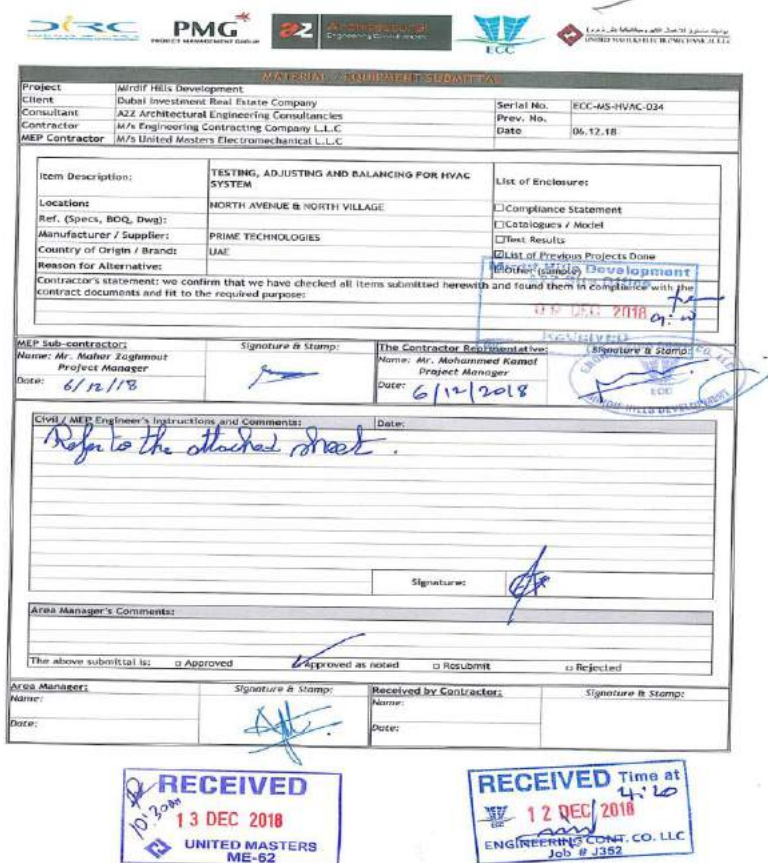 DIRC
PMG
PROJECT MANAGEMENT GROUP
a2
Architectural
Engineering Consultancies
ECC
UNITED MASTERS ELECTROMECHANICAL L.L.C
MATERIAL / EQUIPMENT SUBMITTAL
Project Mirdif Hills Development
Client Dubai Investment Real Estate Company
Serial No. ECC-MS-HVAC-034
Consultant A2Z Architectural Engineering Consultancies
Prev. No.
Contractor M/s Engineering Contracting Company L.L.C
Date 06.12.18
MEP Contractor M/s United Masters Electromechanical L.L.C
Item Description: TESTING, ADJUSTING AND BALANCING FOR HVAC SYSTEM
List of Enclosure:
Location: NORTH AVENUE & NORTH VILLAGE
Compliance Statement
Ref. (Specs, BOQ, Dwg):
Catalogues / Model
Manufacturer / Supplier: PRIME TECHNOLOGIES
Test Results
Country of Origin / Brand: UAE
List of Previous Projects Done
Reason for Alternative:
Other (sample)
Mirdif Hills Development
Contractor's statement: we confirm that we have checked all items submitted herewith and found them in compliance with the
contract documents and fit to the required purpose:
DEC 2018
RECEIVED
MEP Sub-contractor: Signature & Stamp: The Contractor Representative: Signature & Stamp:
Name: Mr. Maher Zaghmout
Project Manager
Date: 6/12/18
Name: Mr. Mohammed Kamal
Project Manager
Date: 6/12/2018
ECC
MIRDIF HILLS DEVELOPMENT
Civil / MEP Engineer's Instructions and Comments: Date:
Refer to the attached sheet.
Signature:
Area Manager's Comments:
The above submittal is: Approved Approved as noted Resubmit Rejected
Area Manager: Signature & Stamp: Received by Contractor: Signature & Stamp:
Name: Name:
Date: Date:
RECEIVED
10:30am
13 DEC 2018
UNITED MASTERS
ME-62
RECEIVED Time at
4:20
12 DEC 2018
ECC
ENGINEERING CONT. CO. LLC
Job # J352